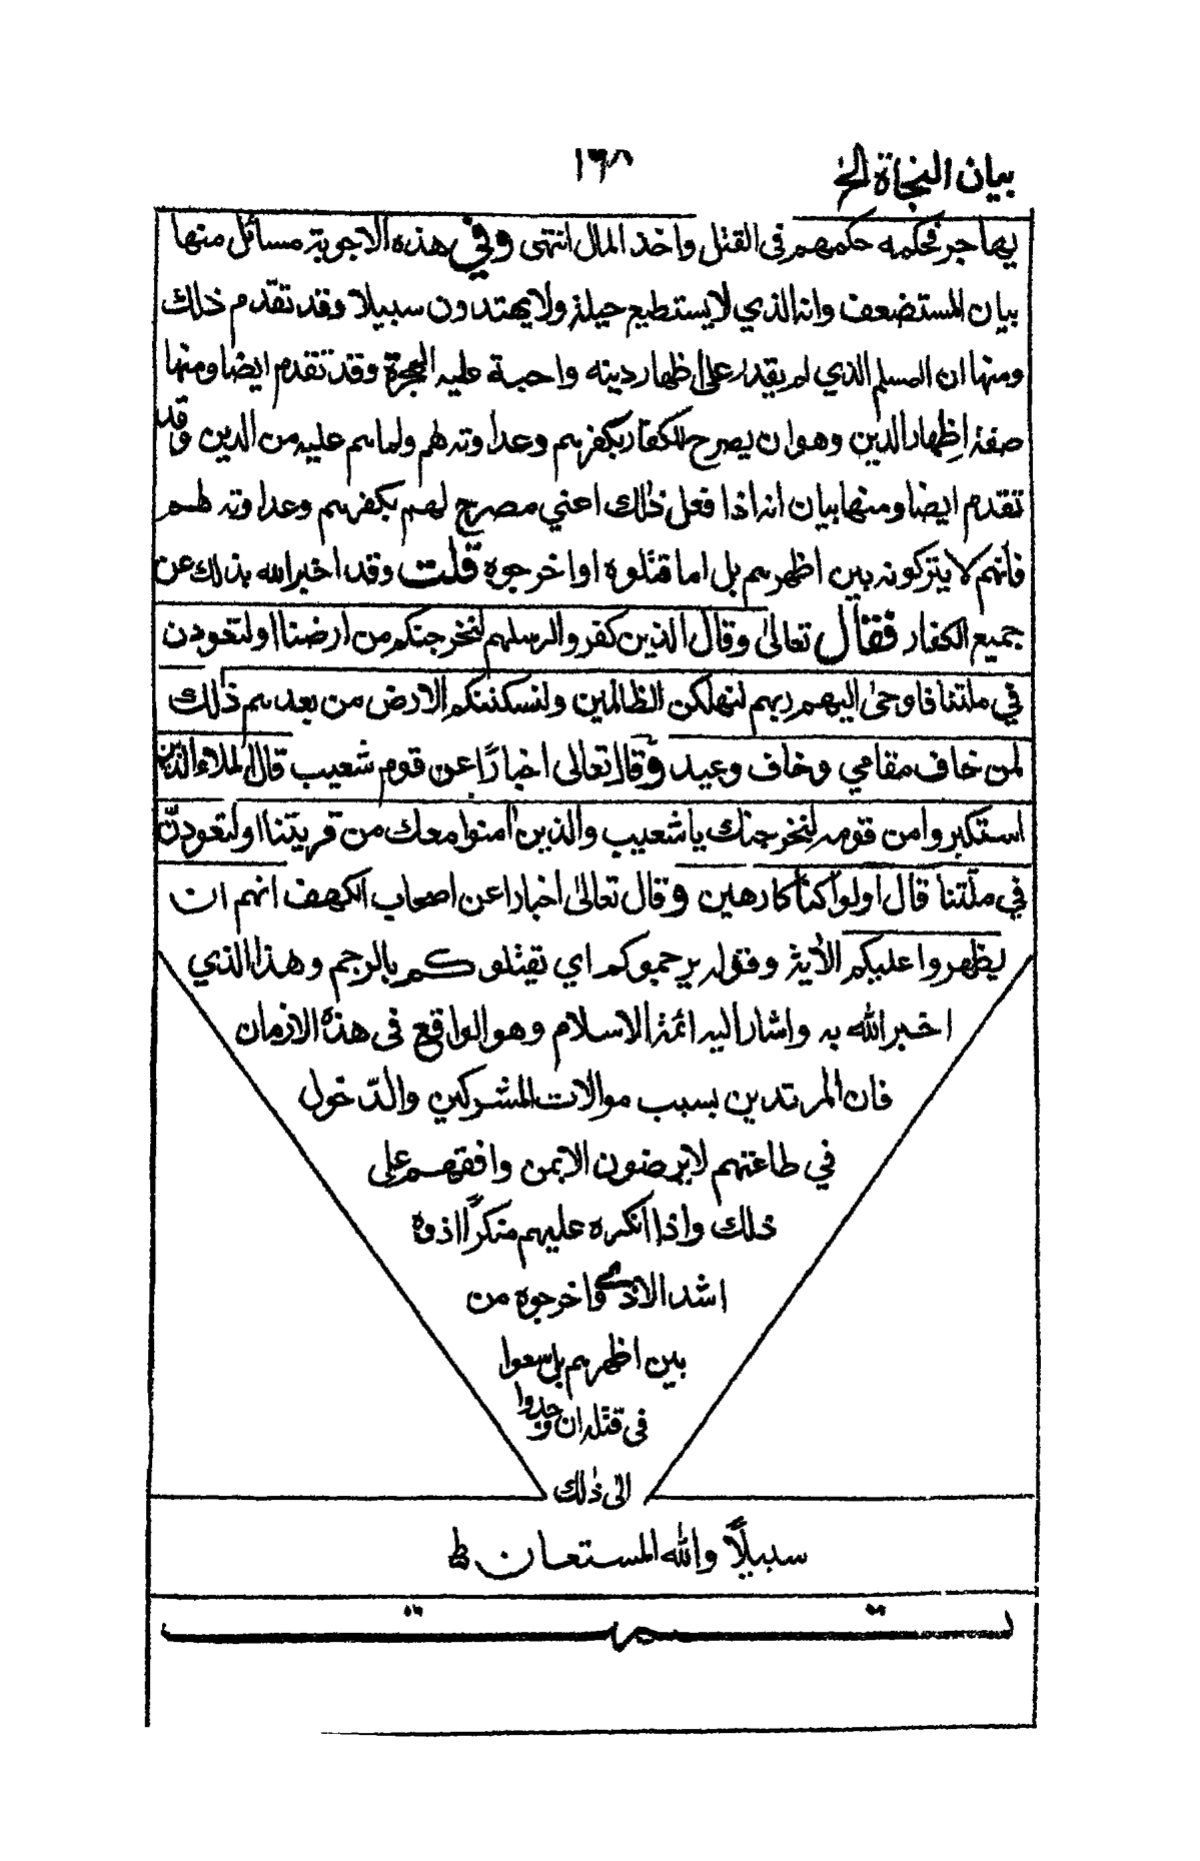 بيان النجاة الخ
١٦٨
يهاجر فحكمه حكمهم في القتل واخذ المال انتهى وفي هذه الاجوبة مسائل منها
بيان المستضعف وانه الذي لا يستطيع حيلة ولا يهتدون سبيلا وقد تقدم ذلك
ومنها ان المسلم الذي لم يقدر على اظهار دينه واجبة عليه الهجرة وقد تقدم ايضا ومنها
صفة اظهار الدين وهو ان يصرح للكفار بكفرهم وعداوته لهم ولما هم عليه من الدين وقد
تقدم ايضا ومنها بيان انه اذا فعل ذلك اعني مصرح لهم بكفرهم وعداوته لهم
فانهم لا يتركونه بين اظهرهم بل اما قتلوه او اخرجوه قلت وقد اخبر الله بذلك عن
جميع الكفار فقال تعالى وقال الذين كفروا لرسلهم لنخرجنكم من ارضنا او لتعودن
في ملتنا فاوحى اليهم ربهم لنهلكن الظالمين ولنسكننكم الارض من بعدهم ذلك
لمن خاف مقامي وخاف وعيد وقال تعالى اخبارًا عن قوم شعيب قال الملاء الذين
استكبروا من قومه لنخرجنك يا شعيب والذين آمنوا معك من قريتنا او لتعودنّ
في ملّتنا قال اولو كنا كارهين وقال تعالى اخبارا عن اصحاب الكهف انهم ان
يظهروا عليكم الآية وقوله يرجموكم اي يقتلوكم بالرجم وهذا الذي
اخبر الله به واشار اليه ائمة الاسلام وهو الواقع في هذه الازمان
فان المرتدين بسبب موالات المشركين والدّخول
في طاعتهم لا يرضون الا بمن وافقهم على
ذلك واذا انكره عليهم منكرًا اذوه
اشد الاذى واخرجوه من
بين اظهرهم بل سعوا
في قتله ان وجدوا
الى ذلك
سبيلًا والله المستعان ط
تمت